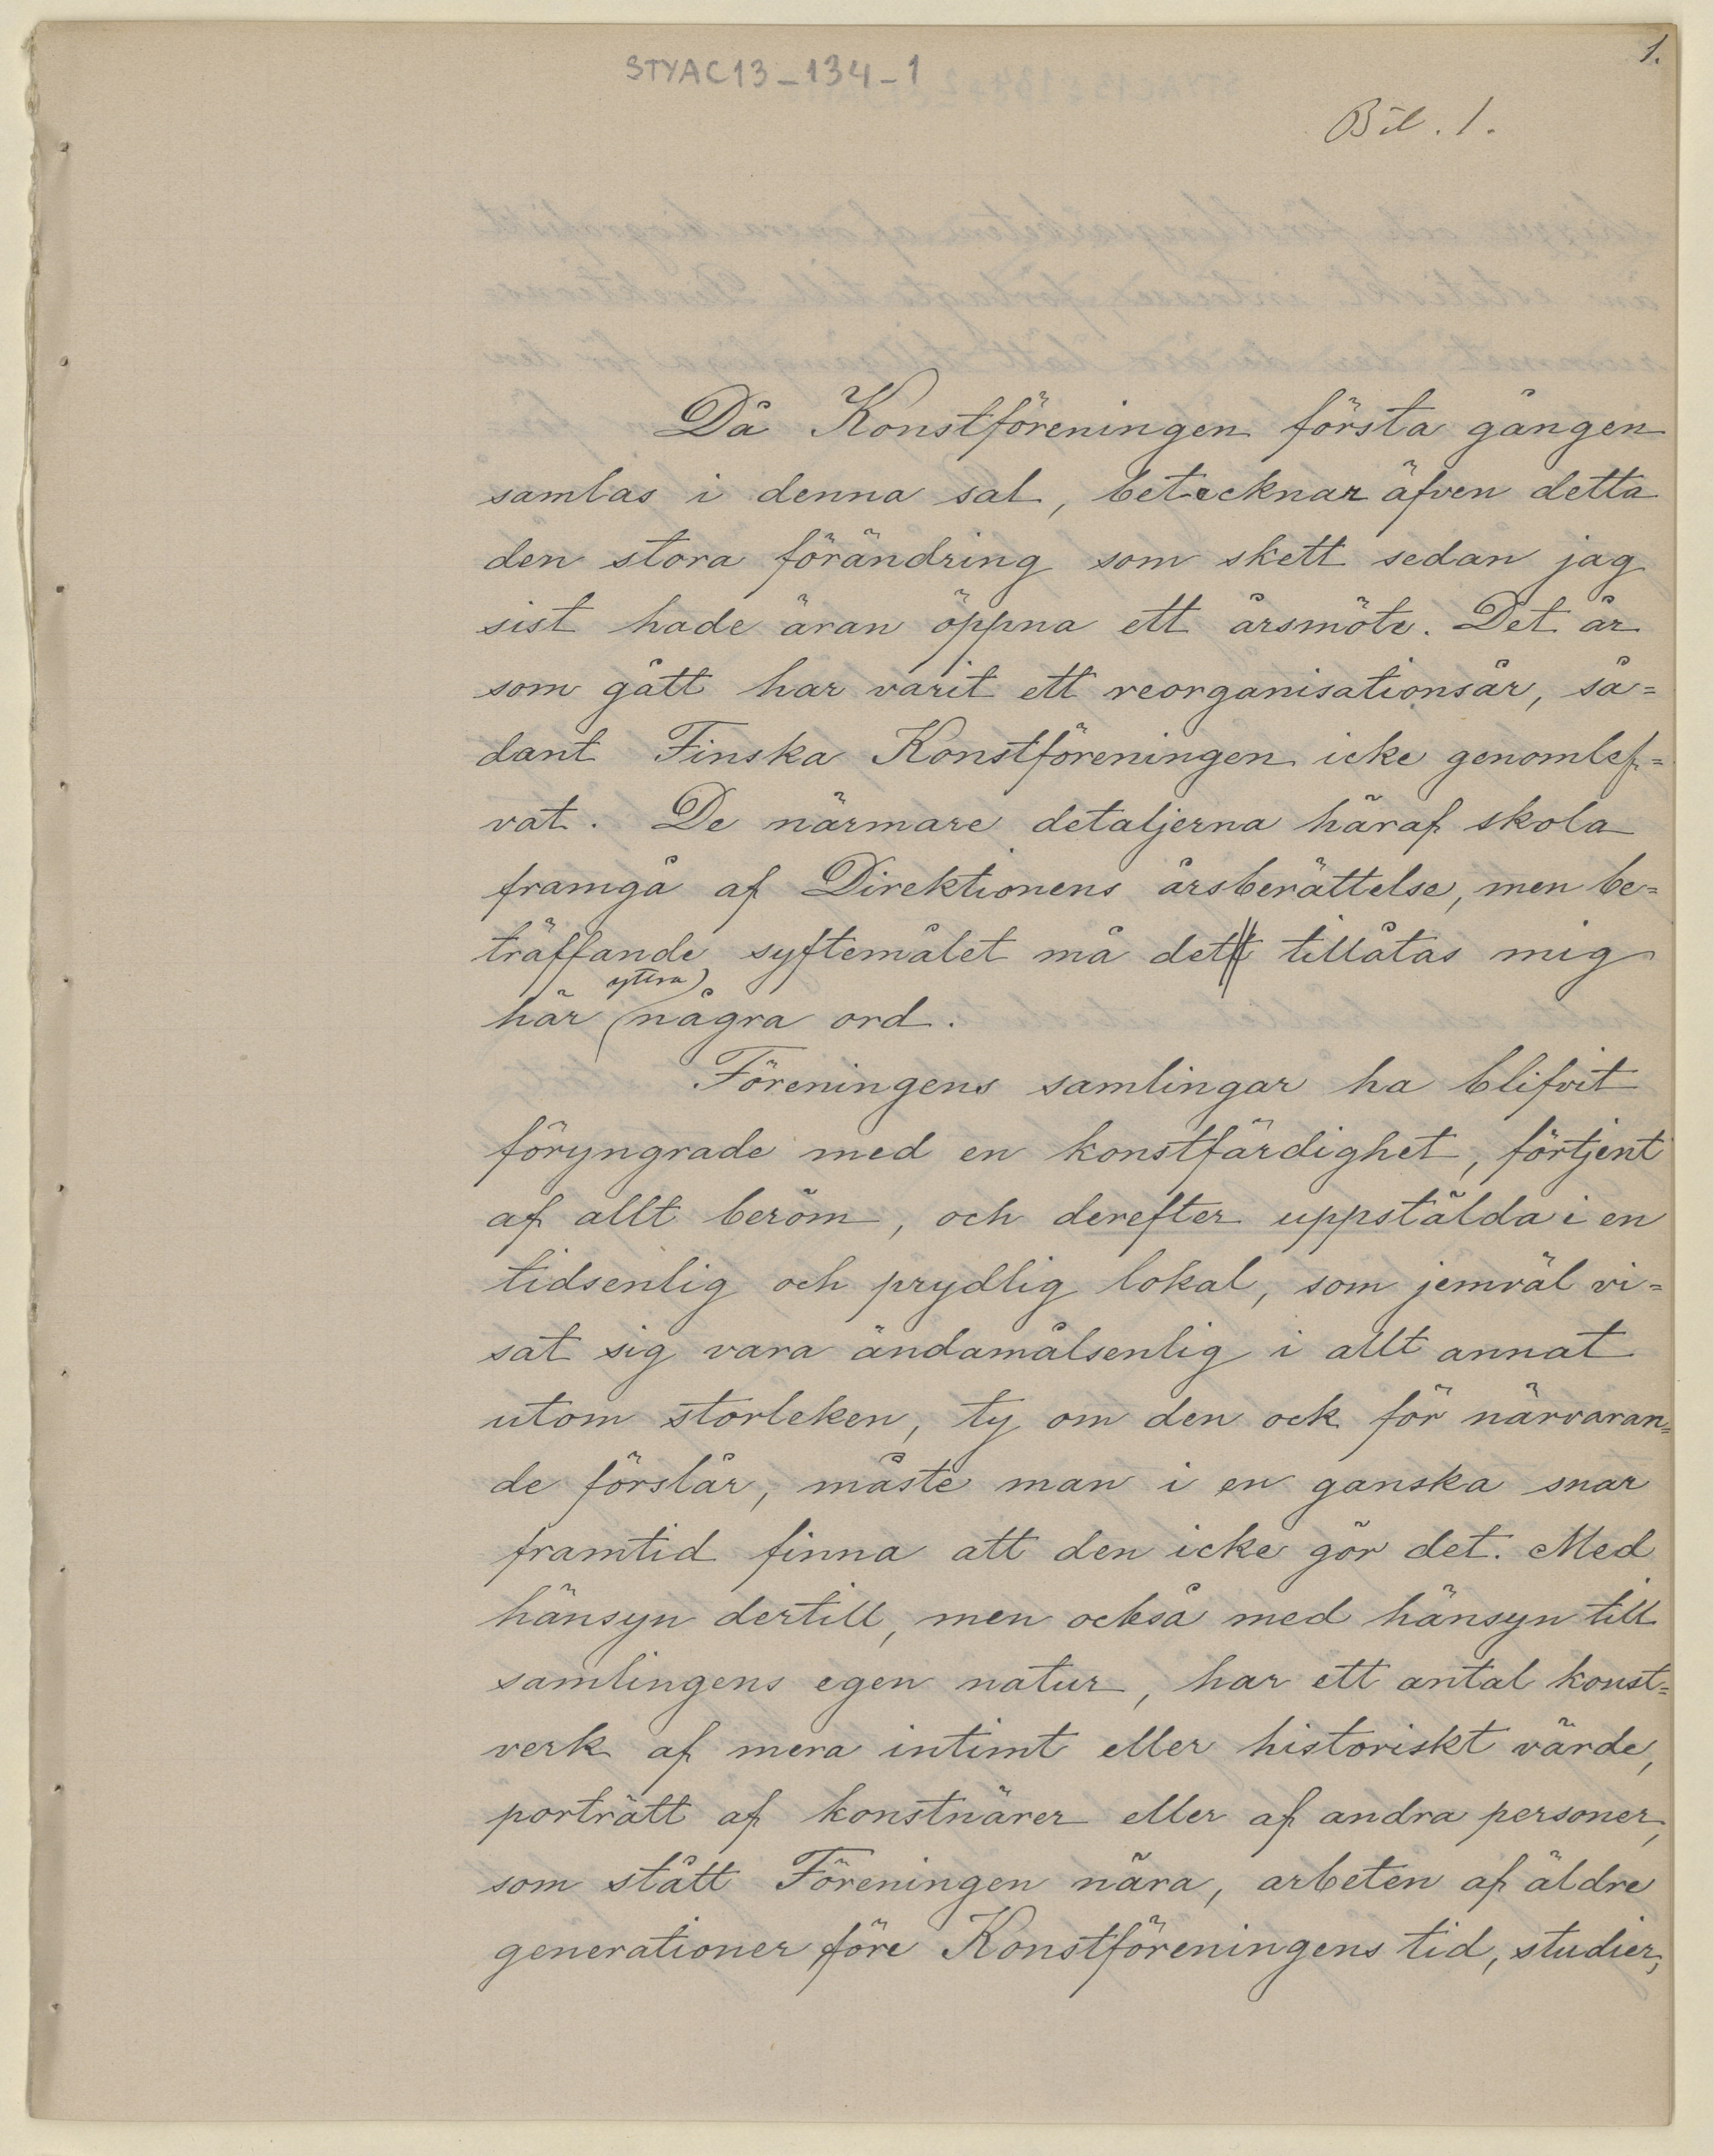 1.
STYAC13_134_1
Bil. 1.
Då Konstföreningen första gången
samlas i denna sal, betecknar äfven detta
den stora förändring som skett sedan jag
sist hade äran öppna ett årsmöte. Det år
som gått har varit ett reorganisationsår, så=
dant Finska Konstföreningen icke genomlef=
vat. De närmare detaljerna häraf skola
framgå af Direktionens årsberättelse, men be=
träffande syftemålet må det tillåtas mig
yttra
här några ord.
Föreningens samlingar ha blifvit
föryngrade med en konstfärdighet, förtjent
af allt beröm, och derefter uppstälda i en
tidsenlig och prydlig lokal, som jemväl vi=
sat sig vara ändamålsenlig i allt annat
utom storleken, ty om den ock för närvaran=
de förslår, måste man i en ganska snar
framtid finna att den icke gör det. Med
hänsyn dertill, men också med hänsyn till
samlingens egen natur, har ett antal konst=
verk af mera intimt eller historiskt värde,
porträtt af konstnärer eller af andra personer,
som stått Föreningen nära, arbeten af äldre
generationer före Konstföreningens tid, studier,